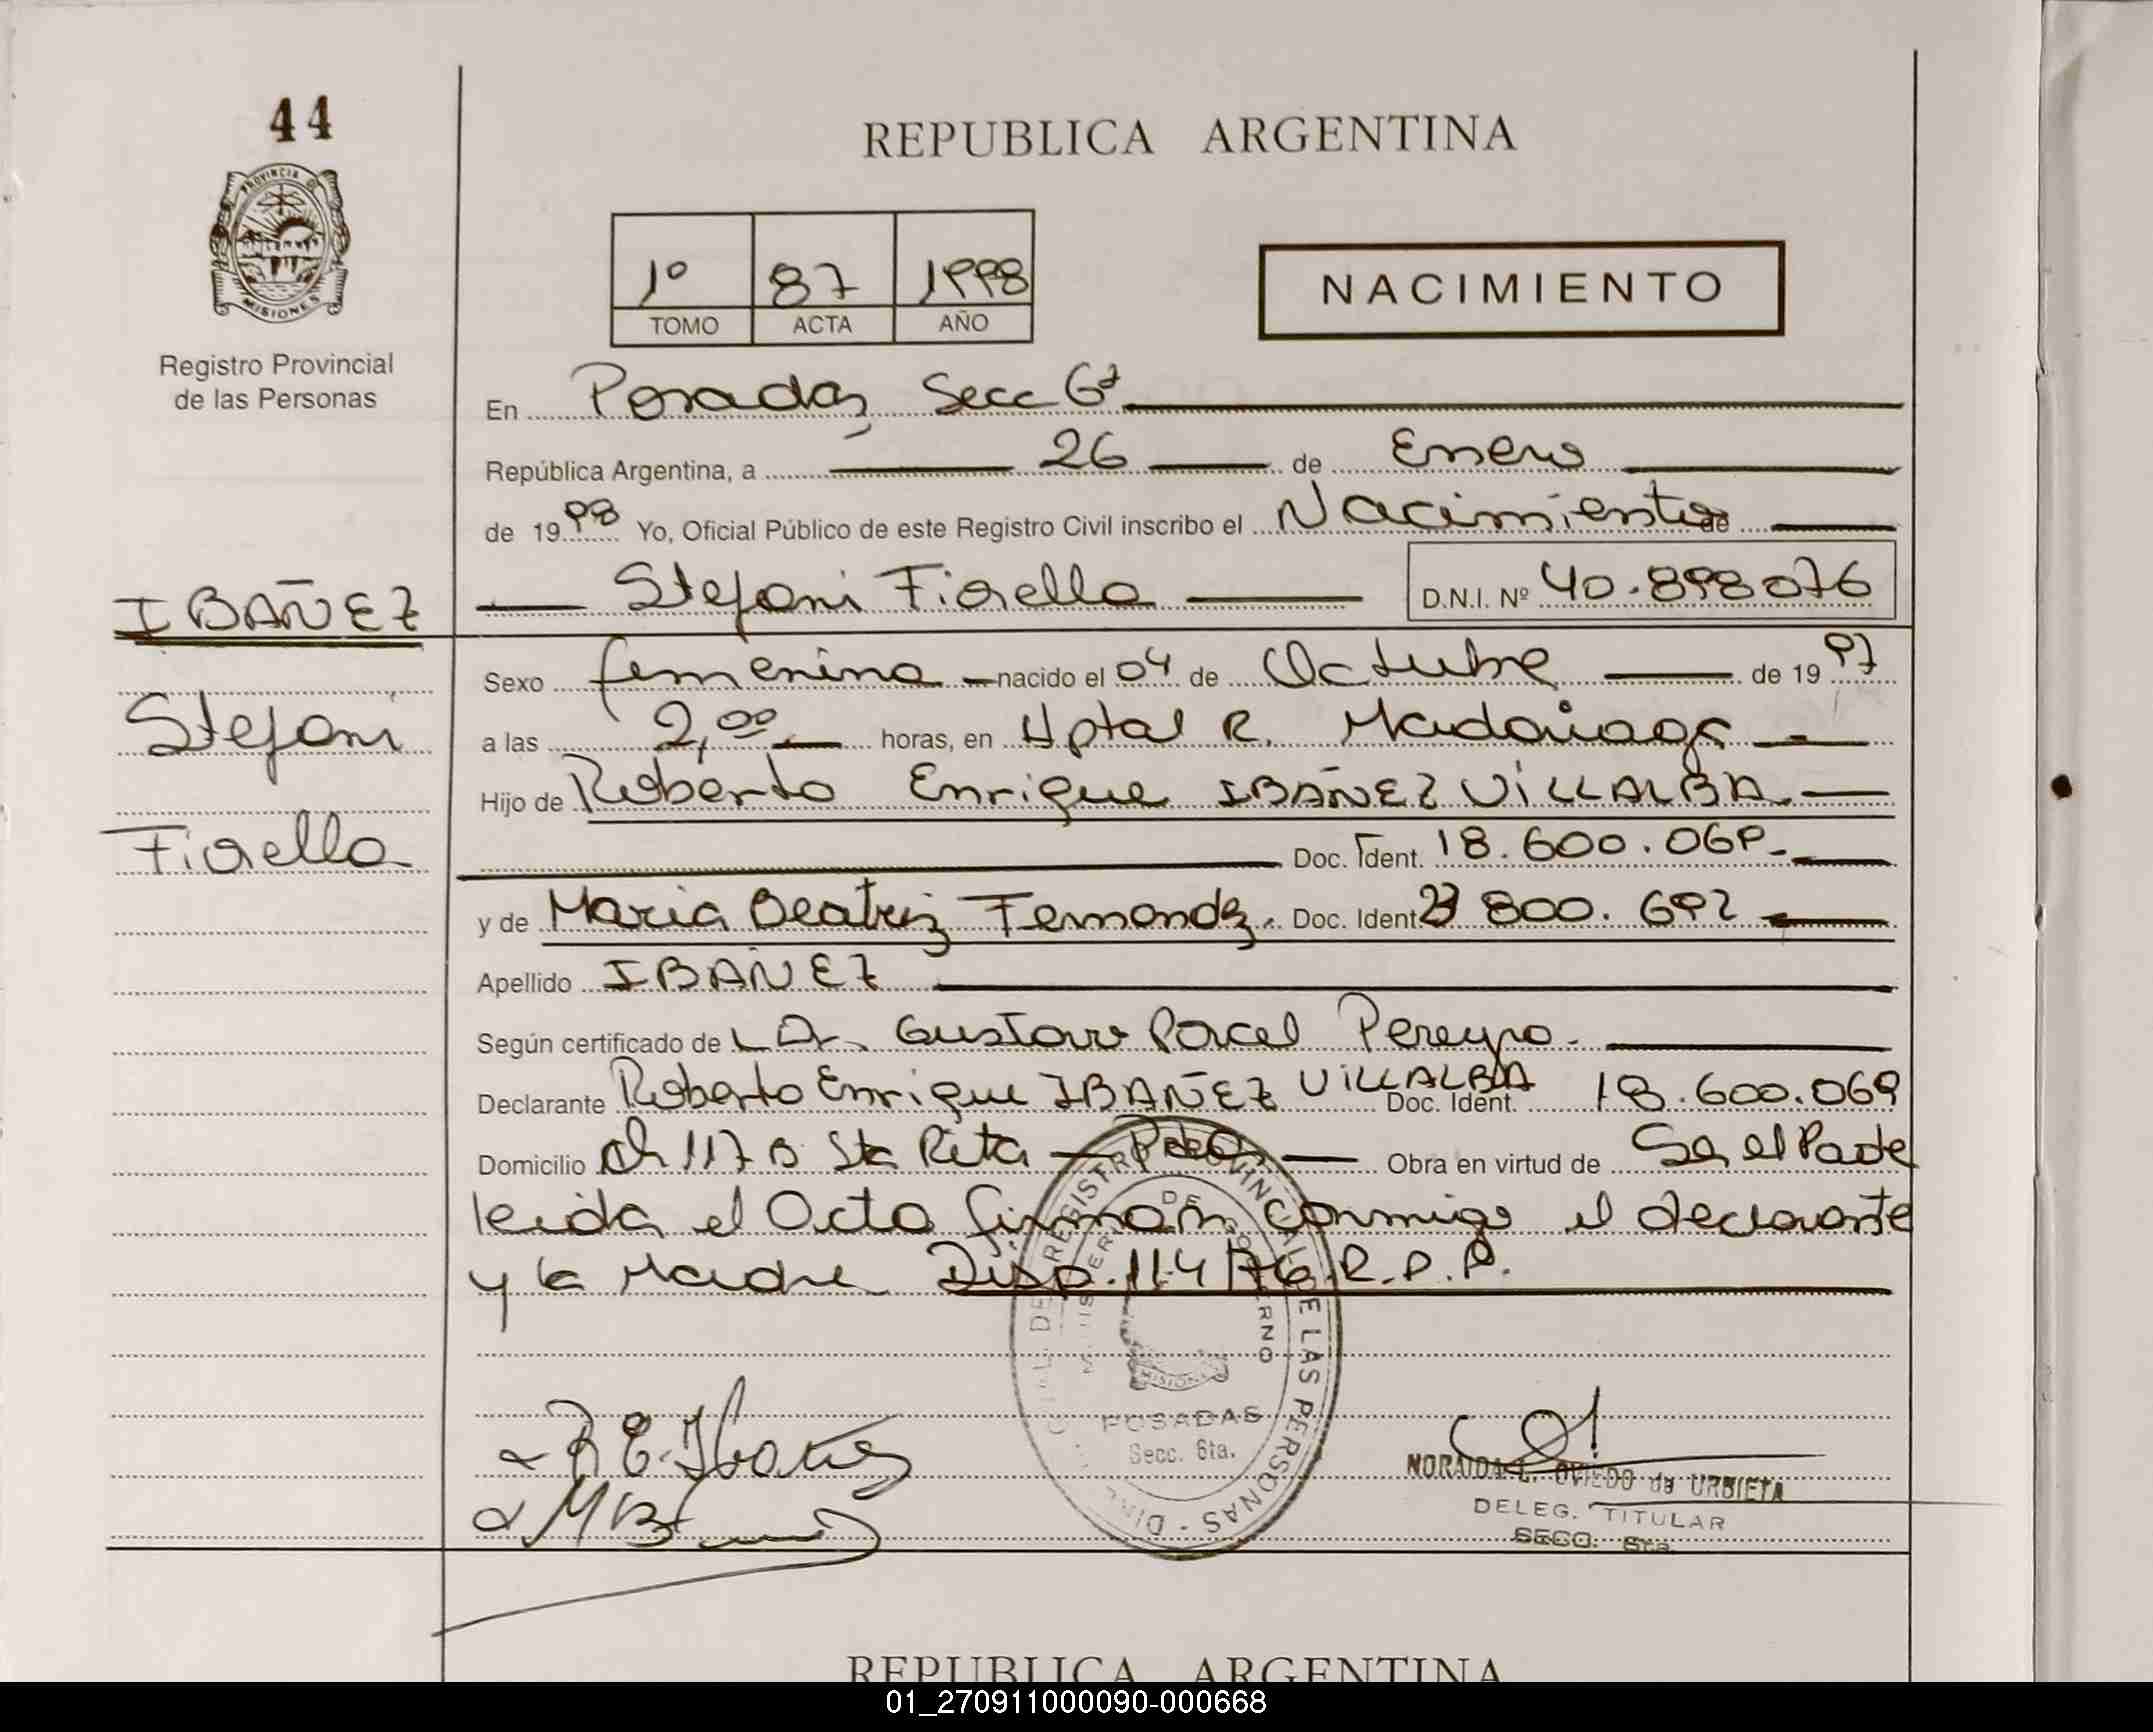 44
REPUBLICA ARGENTINA
PROVINCIA D
MISIONES
1º 87 1998
TOMO ACTA AÑO
NACIMIENTO
Registro Provincial
de las Personas
En Posadas, Secc 6ª
República Argentina, a 26 de Enero
de 1998 Yo, Oficial Público de este Registro Civil inscribo el Nacimiento de
Stefani Fiorella D.N.I. Nº 40.898076
IBAÑEZ
Stefani
Fiorella
Sexo femenino nacido el 04 de Octubre de 1997
a las 2,00 horas, en Hptal R. Madariaga
Hijo de Roberto Enrique IBAÑEZ VILLALBA.
Doc. Ident. 18.600.069.
y de Maria Beatriz Fernandz. Doc. Ident. 800.692
Apellido IBAÑEZ
Según certificado de Dr. Gustavo Porcel Pereyra.
Declarante Roberto Enrique IBAÑEZ VILLALBA Doc. Ident. 18.600.069
Domicilio Ch 117 B Sta Rita Pdas Obra en virtud de Ser el Padre
leida el Acta firman conmigo el declarante
y la Madre Disp. 114/76 R.P.P.
REGISTRO PROVINCIAL DE LAS PERSONAS
MINISTERIO DE GOBIERNO
MISIONES
POSADAS
Secc. 6ta.
R E. Ibañez
NORAIDA L. OVIEDO de URBIETA
DELEG. TITULAR
SECC. 6ta.
REPUBLICA ARGENTINA
01_270911000090-000668